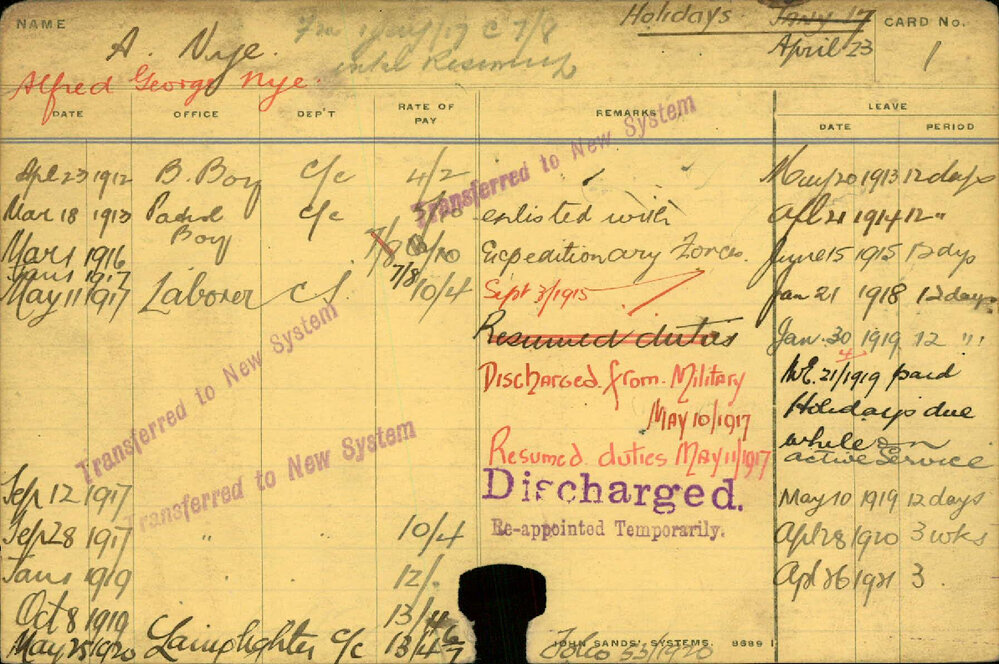 NAME
A. Nye.
Alfred George Nye.
Holidays JANY 17
April 23
CARD No.
1
DATE OFFICE DEP'T RATE OF PAY REMARKS LEAVE
DATE PERIOD
Apl 23 1912 B. Boy C/c 4/2
Mar 18 1913 Patrol Boy C/c
Mar 1 1916 7/8 /10
Jan 1 1917 7/8
May 11 1917 Laborer C/. 10/4
Sep 12 1917
Sep 28 1917 " 10/4
Jan 1 1919 " 12/.
Oct 8 1919 13/4
May 25/1920 Lamplighter C/c 13/4
Transferred to New System
enlisted with
Expeditionary Force.
Sept 3/1915
Resumed duties
Discharged from Military
MAY 10/1917
Resumed duties MAY 11/1917
Discharged.
Re-appointed Temporarily.
Transferred to New System
Transferred to New System
May 20 1913 12 days
Apl 21 1914 12 "
June 15 1915 12 dys
Jan 21 1918 12 days
Jan. 30 1919 12 "
W.E. 21/4/1919 paid
Holidays due
while on
active Service
May 10 1919 12 days
Apl 28/1920 3 wks
Apl 26 1921 3.
JOHN SANDS' SYSTEMS 8689
Folio 33/1920